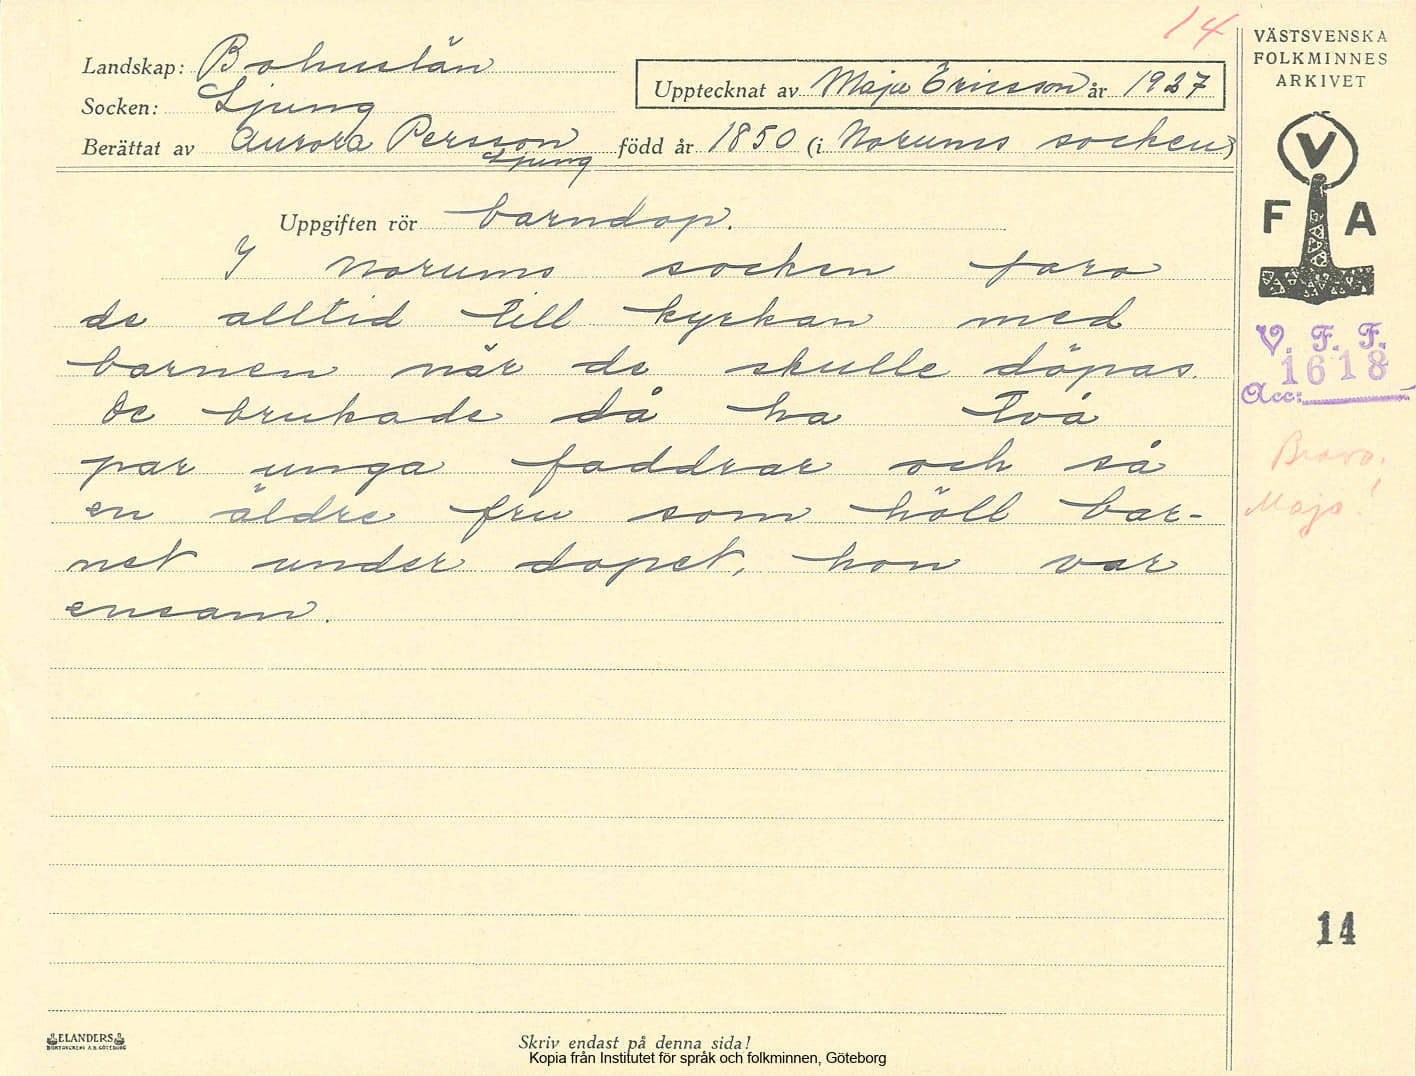 14
VÄSTSVENSKA
FOLKMINNES
ARKIVET
Landskap: Bohuslän
Upptecknat av Maja Ericsson år 1927
Socken: Ljung
Berättat av Aurora Persson född år 1850 (i Norums socken)
Ljung
V
F A
Uppgiften rör barndop.
I Norums socken foro
de alltid till kyrkan med
barnen när de skulle döpas.
De brukade då ha två
par unga faddrar och så
en äldre fru som höll bar-
net under dopet, hon var
ensam.
V. F. F.
1618
Acc:
Bravo.
Maja!
14
ELANDERS
BOKTRYCKERI A.B. GÖTEBORG
Skriv endast på denna sida!
Kopia från Institutet för språk och folkminnen, Göteborg